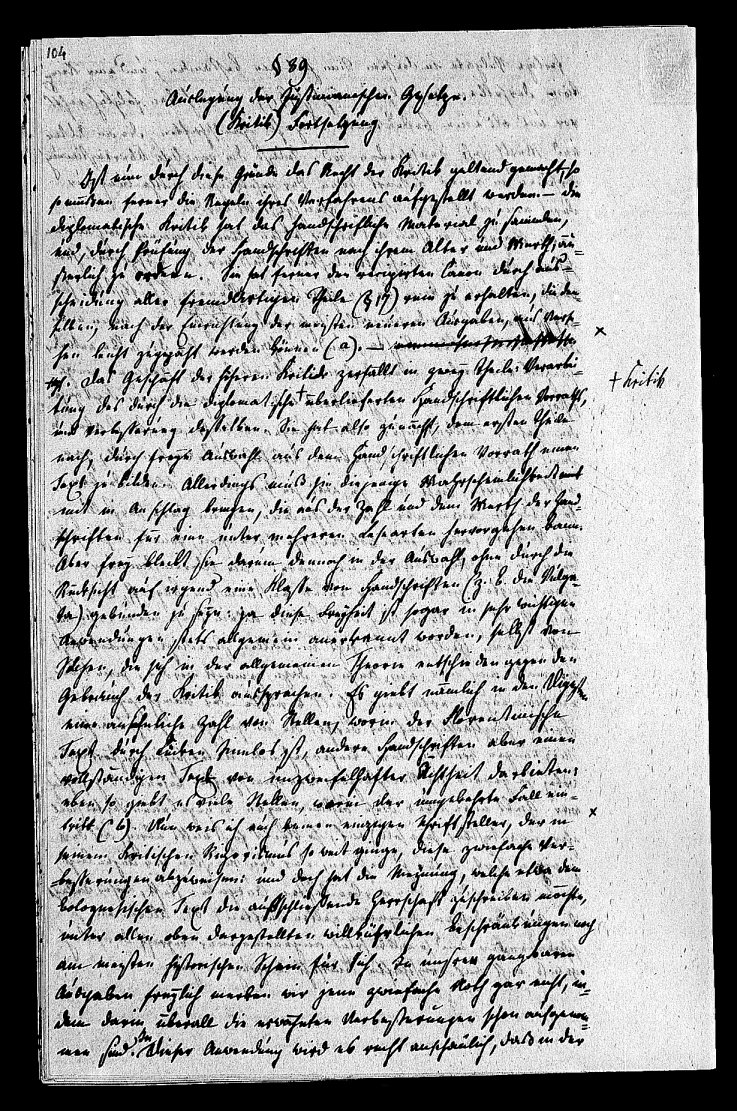 104
§ 39
Auslegung der Justinianischen Gesetze.
(Kritik) Fortsetzung
Ist nun durch diese Gründe das Recht der Kritik geltend gemacht, so
so müssen ferner die Regeln ihres Verfahrens aufgestellt werden. — Die
diplomatische Kritik hat das handschriftliche Material zu sammeln,
und, durch Prüfung der Handschriften nach ihrem Alter und Werth, äu-
ßerlich zu ordnen. Sie hat ferner den recipirten Canon durch Aus-
scheidung aller fremdartigen Theile (§ 17) rein zu erhalten, die den-
selben, nach der Einrichtung der meisten neueren Ausgaben, aus Verse-
hen leicht zugezählt werden können (a). —
Das Geschäft der höheren Kritik zerfällt in zwey Theile: Verarbei-
tung des durch die diplomatische + überlieferten Handschriftlichen Vorraths,
+ Kritik
und Verbesserung desselben. Sie hat also zunächst, dem ersten Theile
nach, durch freye Auswahl aus dem Handschriftlichen Vorrath einen
Text zu bilden. Allerdings muß sie diejenige Wahrscheinlichkeit
mit in Anschlag bringen, die aus der Zahl und dem Werth der Hand-
schriften für eine unter mehreren Lesearten hervorgehen kann.
Aber frey bleibt sie darum dennoch in der Auswahl, ohne durch die
Rücksicht auf irgend eine Klasse von Handschriften (z. B. die Vulga-
ta) gebunden zu seyn: ja diese Freyheit ist sogar in sehr wichtigen
Anwendungen stets allgemein anerkannt worden, selbst von
Solchen, die sich in der allgemeinen Theorie entschieden gegen den
Gebrauch der Kritik aussprachen. Es giebt nämlich in den Digesten
eine ansehnliche Zahl von Stellen, worin der Florentinische
Text durch Lücken sinnlos ist, andere Handschriften aber einen
vollständigen Text von unzweifelhafter Ächtheit darbieten:
eben so giebt es viele Stellen, worin der umgekehrte Fall ein-
tritt (b). Nun weis ich auch keinen einzigen Schriftsteller, der in
seinem kritischen Rigorismus so weit ginge, diese zweifache Ver-
besserungen abzuweisen: und doch hat die Meynung, welche etwa dem
bolognesischen Text die ausschließende Herrschaft zuschreiben möchte,
unter allen oben dargestellten willkührlichen Beschränkungen noch
am meisten historischen Schein für sich. In unsren gangbaren
Ausgaben freylich merken wir jene zweifache Noth gar nicht, in-
dem darin überall die erwähnten Verbesserungen schon aufgenom-
men sind. In dieser Anwendung wird es recht anschaulich, daß in der